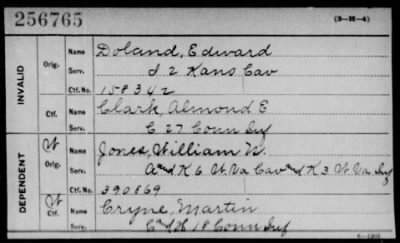 256765
(3-H-4)
INVALID
Orig.
Name Doland, Edward
Serv. I 2 Kans Cav
Ctf. No. 158342
Ctf.
Name Clark, Almond E
Serv. C 27 Conn Inf
DEPENDENT
W Orig.
Name Jones, William W.
Serv. A and K 6 W. Va Cav and K 3 W. Va Inf
Ctf. No. 390869
W Ctf.
Name Cryne, Martin
Serv. C and H 18 Conn Inf